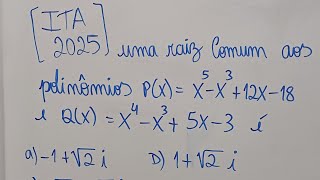 [ITA
2025] uma raiz comum aos
polinômios P(x) = x⁵ - x³ + 12x - 18
e Q(x) = x⁴ - x³ + 5x - 3 é
a) -1 + √2 i D) 1 + √2 i